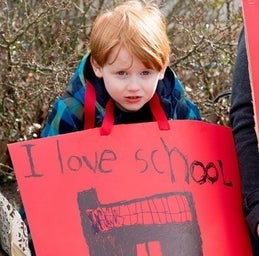 I love school